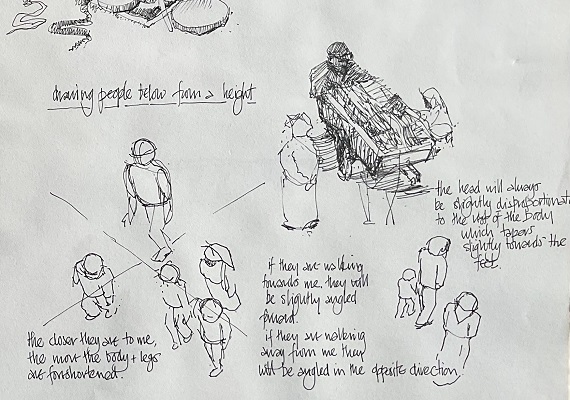 drawing people below from a height
the head will always
be slightly disproportionate
to the rest of the body
which tapers
slightly towards the
feet.
if they are walking
towards me, they will
be slightly angled
forward.
if they are walking
away from me they
will be angled in the opposite direction.
the closer they are to me,
the more the body + legs
are foreshortened.